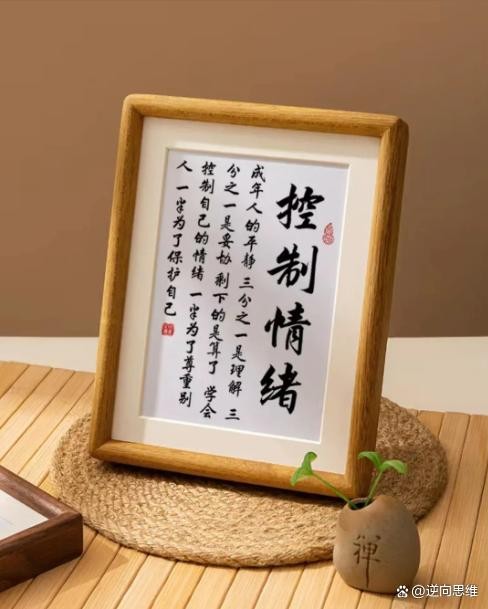 控制情绪
成年人的平静 三分之一是理解 三
分之一是妥协 剩下的是算了 学会
控制自己的情绪 一半为了尊重别
人 一半为了保护自己
禪
@逆向思维